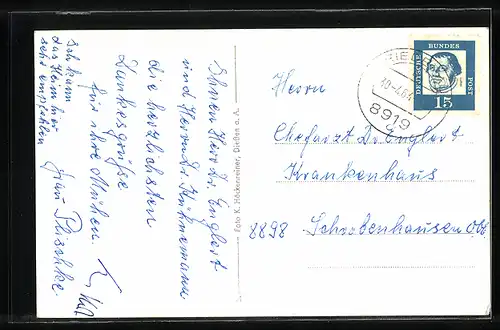 Ihnen Herr Dr. Englert
und Herrn Dr. Kühnemann
die herzlichsten
Dankesgrüße
für ihre Mühen.
Ich kann
das Heim hier
sehr empfehlen
Frau Plischke.
Foto K. Höckenreiner, Dießen a. A.
DEUTSCHE BUNDESPOST
15
8919
Herrn
Chefarzt Dr. Englert
Krankenhaus
8898 Schrobenhausen Obb.